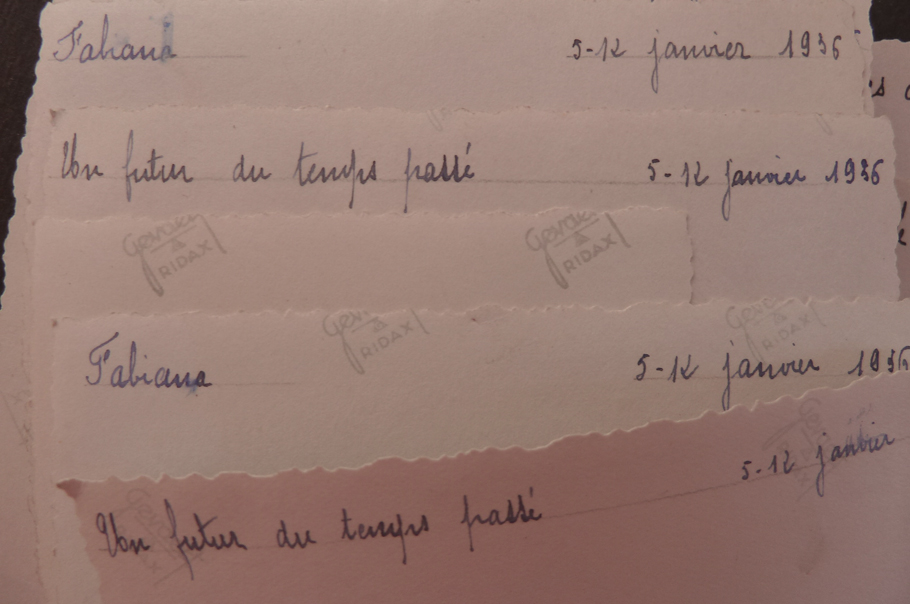 Fabiana 5-12 janvier 1936
Un futur du temps passé 5-12 janvier 1936
Gevaert
RIDAX
Gevaert
RIDAX
Gevaert
RIDAX
Fabiana 5-12 janvier 1936
Un futur du temps passé 5-12 janvier